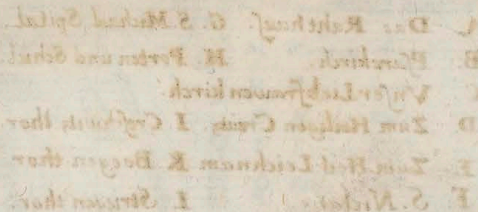 A. Das Rahthauß. G. S. Michael Spital.
B. Pfarrkirch. H. Pforten und Schul
C. Vnser Liebfrauwen kirch.
D. Zum Heiligen Creutz. I. thor
E. Zum Heil Leichnam K. Boegen thor
F. S. Niclas. L. thor.